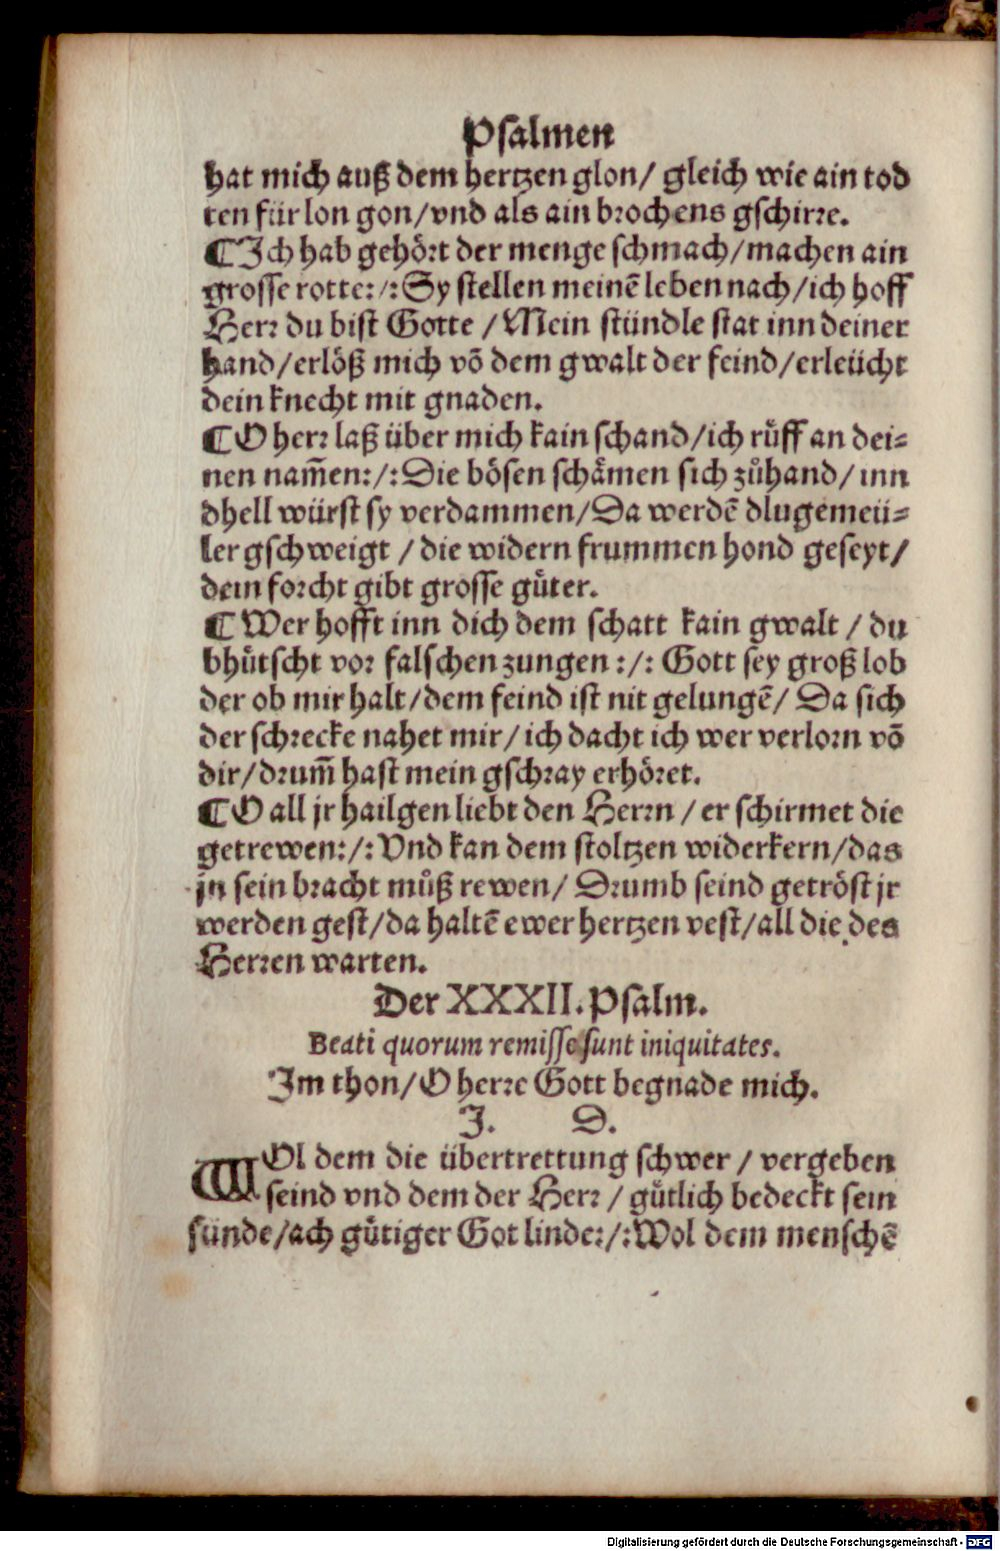 Psalmen
hat mich auß dem hertzen glon/ gleich wie ain tod
ten für lon gon/vnd als ain brochens gschirre.
¶Ich hab gehört der menge schmach/machen ain
grosse rotte:/:Sy stellen meinē leben nach/ich hoff
Herr du bist Gotte /Mein stündle stat inn deiner
hand/erlöß mich võ dem gwalt der feind/erleücht
dein knecht mit gnaden.
¶O herr laß über mich kain schand/ich růff an dei=
nen nam̃en:/:Die bösen schämen sich zůhand/ inn
dhell würst sy verdammen/Da werdē dlugemeü=
ler gschweigt /die widern frummen hond geseyt/
dein forcht gibt grosse gůter.
¶Wer hofft inn dich dem schatt kain gwalt /du
bhůtscht vor falschen zungen :/: Gott sey groß lob
der ob mir halt/dem feind ist nit gelungē/ Da sich
der schrecke nahet mir/ich dacht ich wer verlorn võ
dir/drum̃ hast mein gschray erhöret.
¶O all jr hailgen liebt den Herrn /er schirmet die
getrewen:/:Vnd kan dem stoltzen widerkern/das
jn sein bracht můß rewen/ Drumb seind getröst jr
werden gest/da haltē ewer hertzen vest/all die des
Herren warten.
Der XXXII. Psalm.
Beati quorum remisse sunt iniquitates.
Im thon/O herre Gott begnade mich.
J. D.
WOl dem die übertrettung schwer / vergeben
seind vnd dem der Herr / gůtlich bedeckt sein
sünde/ach gůtiger Got linde:/:Wol dem menschē
Digitalisierung gefördert durch die Deutsche Forschungsgemeinschaft - DFG